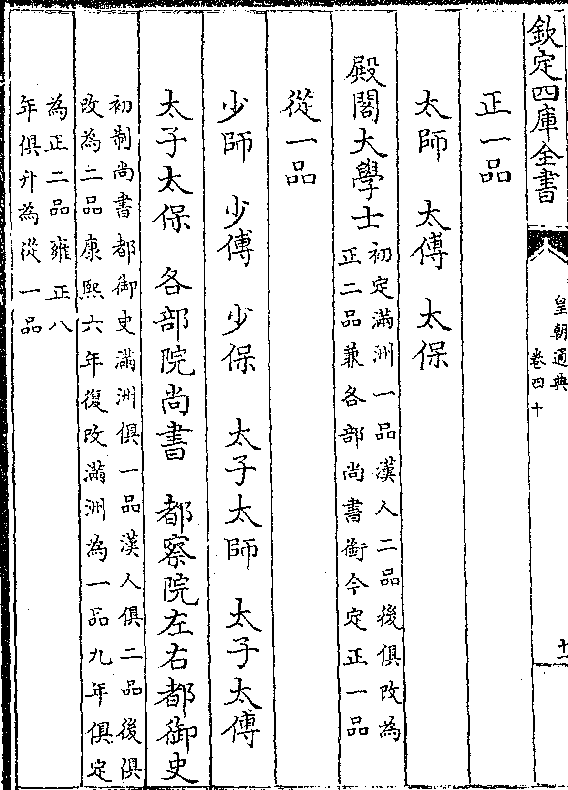 欽定四庫全書
皇朝通典
卷四十
十一
正一品
太師　太傅　太保
殿閣大學士
初定滿洲一品漢人二品後俱改為
正二品兼各部尚書銜今定正一品
從一品
少師　少傅　少保　太子太師　太子太傅
太子太保　各部院尚書　都察院左右都御史
初制尚書都御史滿洲俱一品漢人俱二品後俱
改為二品康熙六年復改滿洲為一品九年俱定
為正二品雍正八
年俱升為從一品